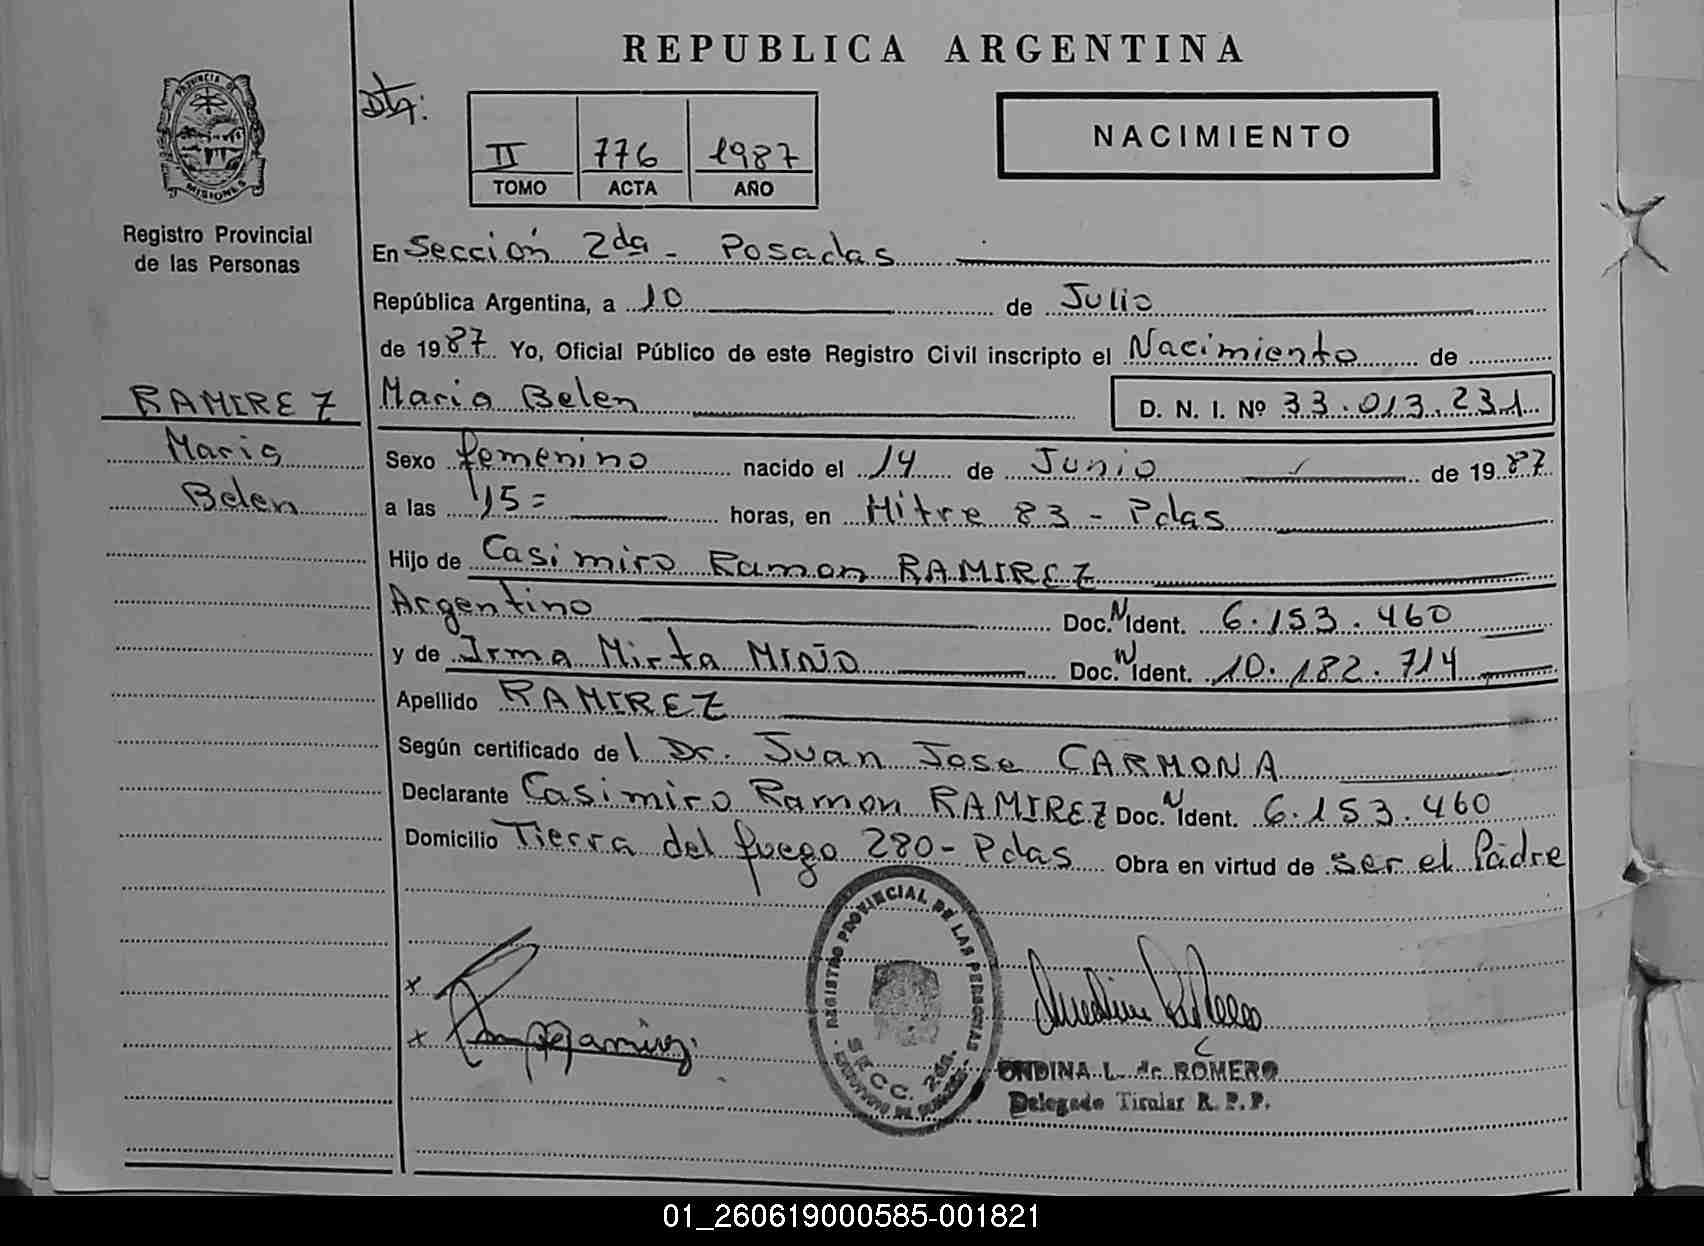 REPUBLICA ARGENTINA
PROVINCIA DE
MISIONES
Registro Provincial
de las Personas
Dta:
II 776 1987
TOMO ACTA AÑO
NACIMIENTO
En Sección 2da - Posadas
República Argentina, a 10 de Julio
de 1987 Yo, Oficial Público de este Registro Civil inscripto el Nacimiento de
RAMIREZ
Maria
Belen
Maria Belen D. N. I. Nº 33.013.231
Sexo femenino nacido el 14 de Junio de 1987
a las 15= horas, en Mitre 83 - Pdas
Hijo de Casimiro Ramon RAMIREZ
Argentino Doc. N Ident. 6.153.460
y de Irma Mirta MIÑO Doc. N Ident. 10.182.714
Apellido RAMIREZ
Según certificado del Dr. Juan Jose CARMONA
Declarante Casimiro Ramon RAMIREZ Doc. N Ident. 6.153.460
Domicilio Tierra del fuego 280 - Pdas Obra en virtud de ser el Padre
REGISTRO PROVINCIAL DE LAS PERSONAS
SECC. 2da.
x
x
ONDINA L. de ROMERO
Delegado Titular R. P. P.
01_260619000585-001821